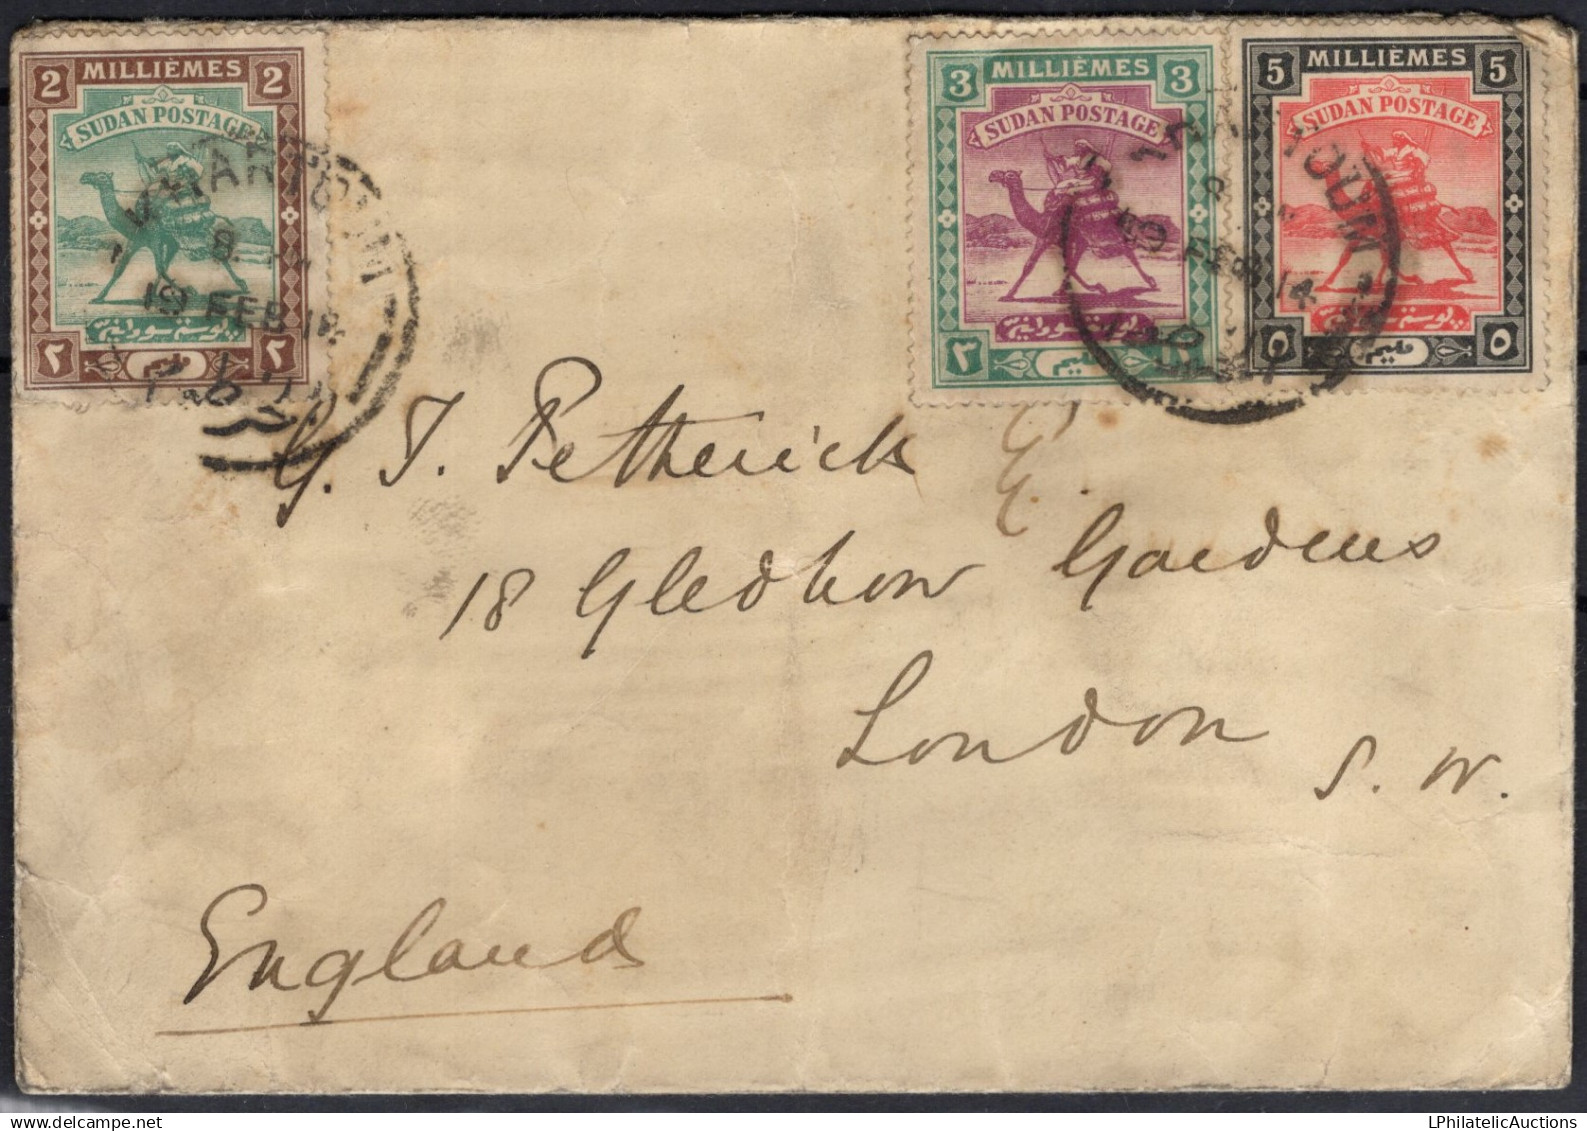 2 MILLIÈMES 2
SUDAN POSTAGE
بوستة سودانية
٢ مليم ٢
3 MILLIÈMES 3
SUDAN POSTAGE
بوستة سودانية
٣ مليم
5 MILLIÈMES 5
SUDAN POSTAGE
بوستة سودانية
٥ مليم ٥
KHARTOUM
19 FEB 14
KHARTOUM
19 FEB 14
G. T. Petherick
18 Gledhow Gardens
London
S. W.
England
LPhilatelicAuctions